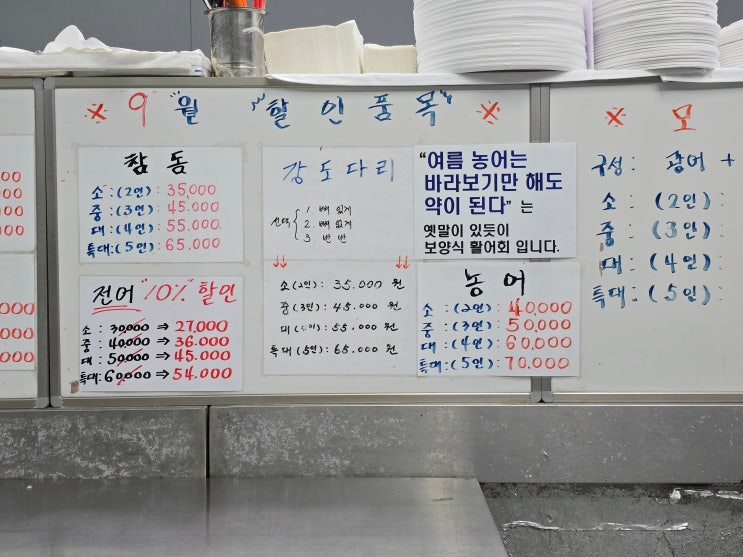 00
00
00
00
000
000
000
※ 9 "월" "할인품목" ※
참돔
소 : (2인) : 35,000
중 : (3인) : 45.000
대 : (4인) : 55.000
특대 : (5인) : 65.000
전어 "10%" 할인
소 : 30,000 ⇒ 27,000
중 : 40,000 ⇒ 36.000
대 : 50,000 ⇒ 45.000
특대 : 60,000 ⇒ 54.000
강도다리
선택 { 1. 뼈 있게
2. 뼈 없게
3. 반 반
↓↓ ↓↓
소 (2인) : 35.000 원
중 (3인) : 45.000 원
대 (4인) : 55.000 원
특대 (5인) : 65.000 원
"여름 농어는
바라보기만 해도
약이 된다" 는
옛말이 있듯이
보양식 활어회 입니다.
농어
소 : (2인) : 40,000
중 : (3인) : 50,000
대 : (4인) : 60,000
특대 : (5인) : 70.000
※ 모
구성 : 광어 +
소 : (2인) :
중 : (3인) :
대 : (4인) :
특대 : (5인) :